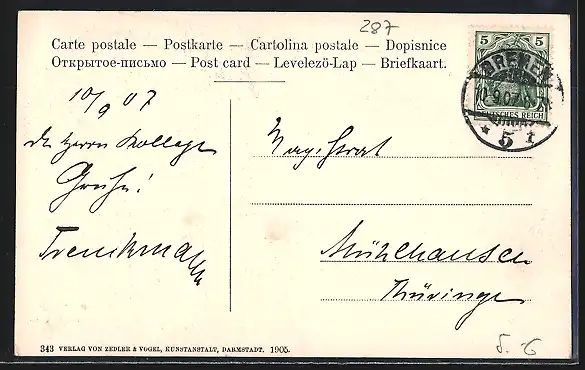 287
Carte postale — Postkarte — Cartolina postale — Dopisnice
Открытое-письмо — Post card — Levelezö-Lap — Briefkaart.
5 5
DEUTSCHES REICH
BREMEN
10.9.07
* 5 f
10/9 07
Herrn Kollege
Gruß!
Trenkmann
Magistrat
Mühlhausen
Thüringen
343 VERLAG VON ZEDLER & VOGEL, KUNSTANSTALT, DARMSTADT. 1905.